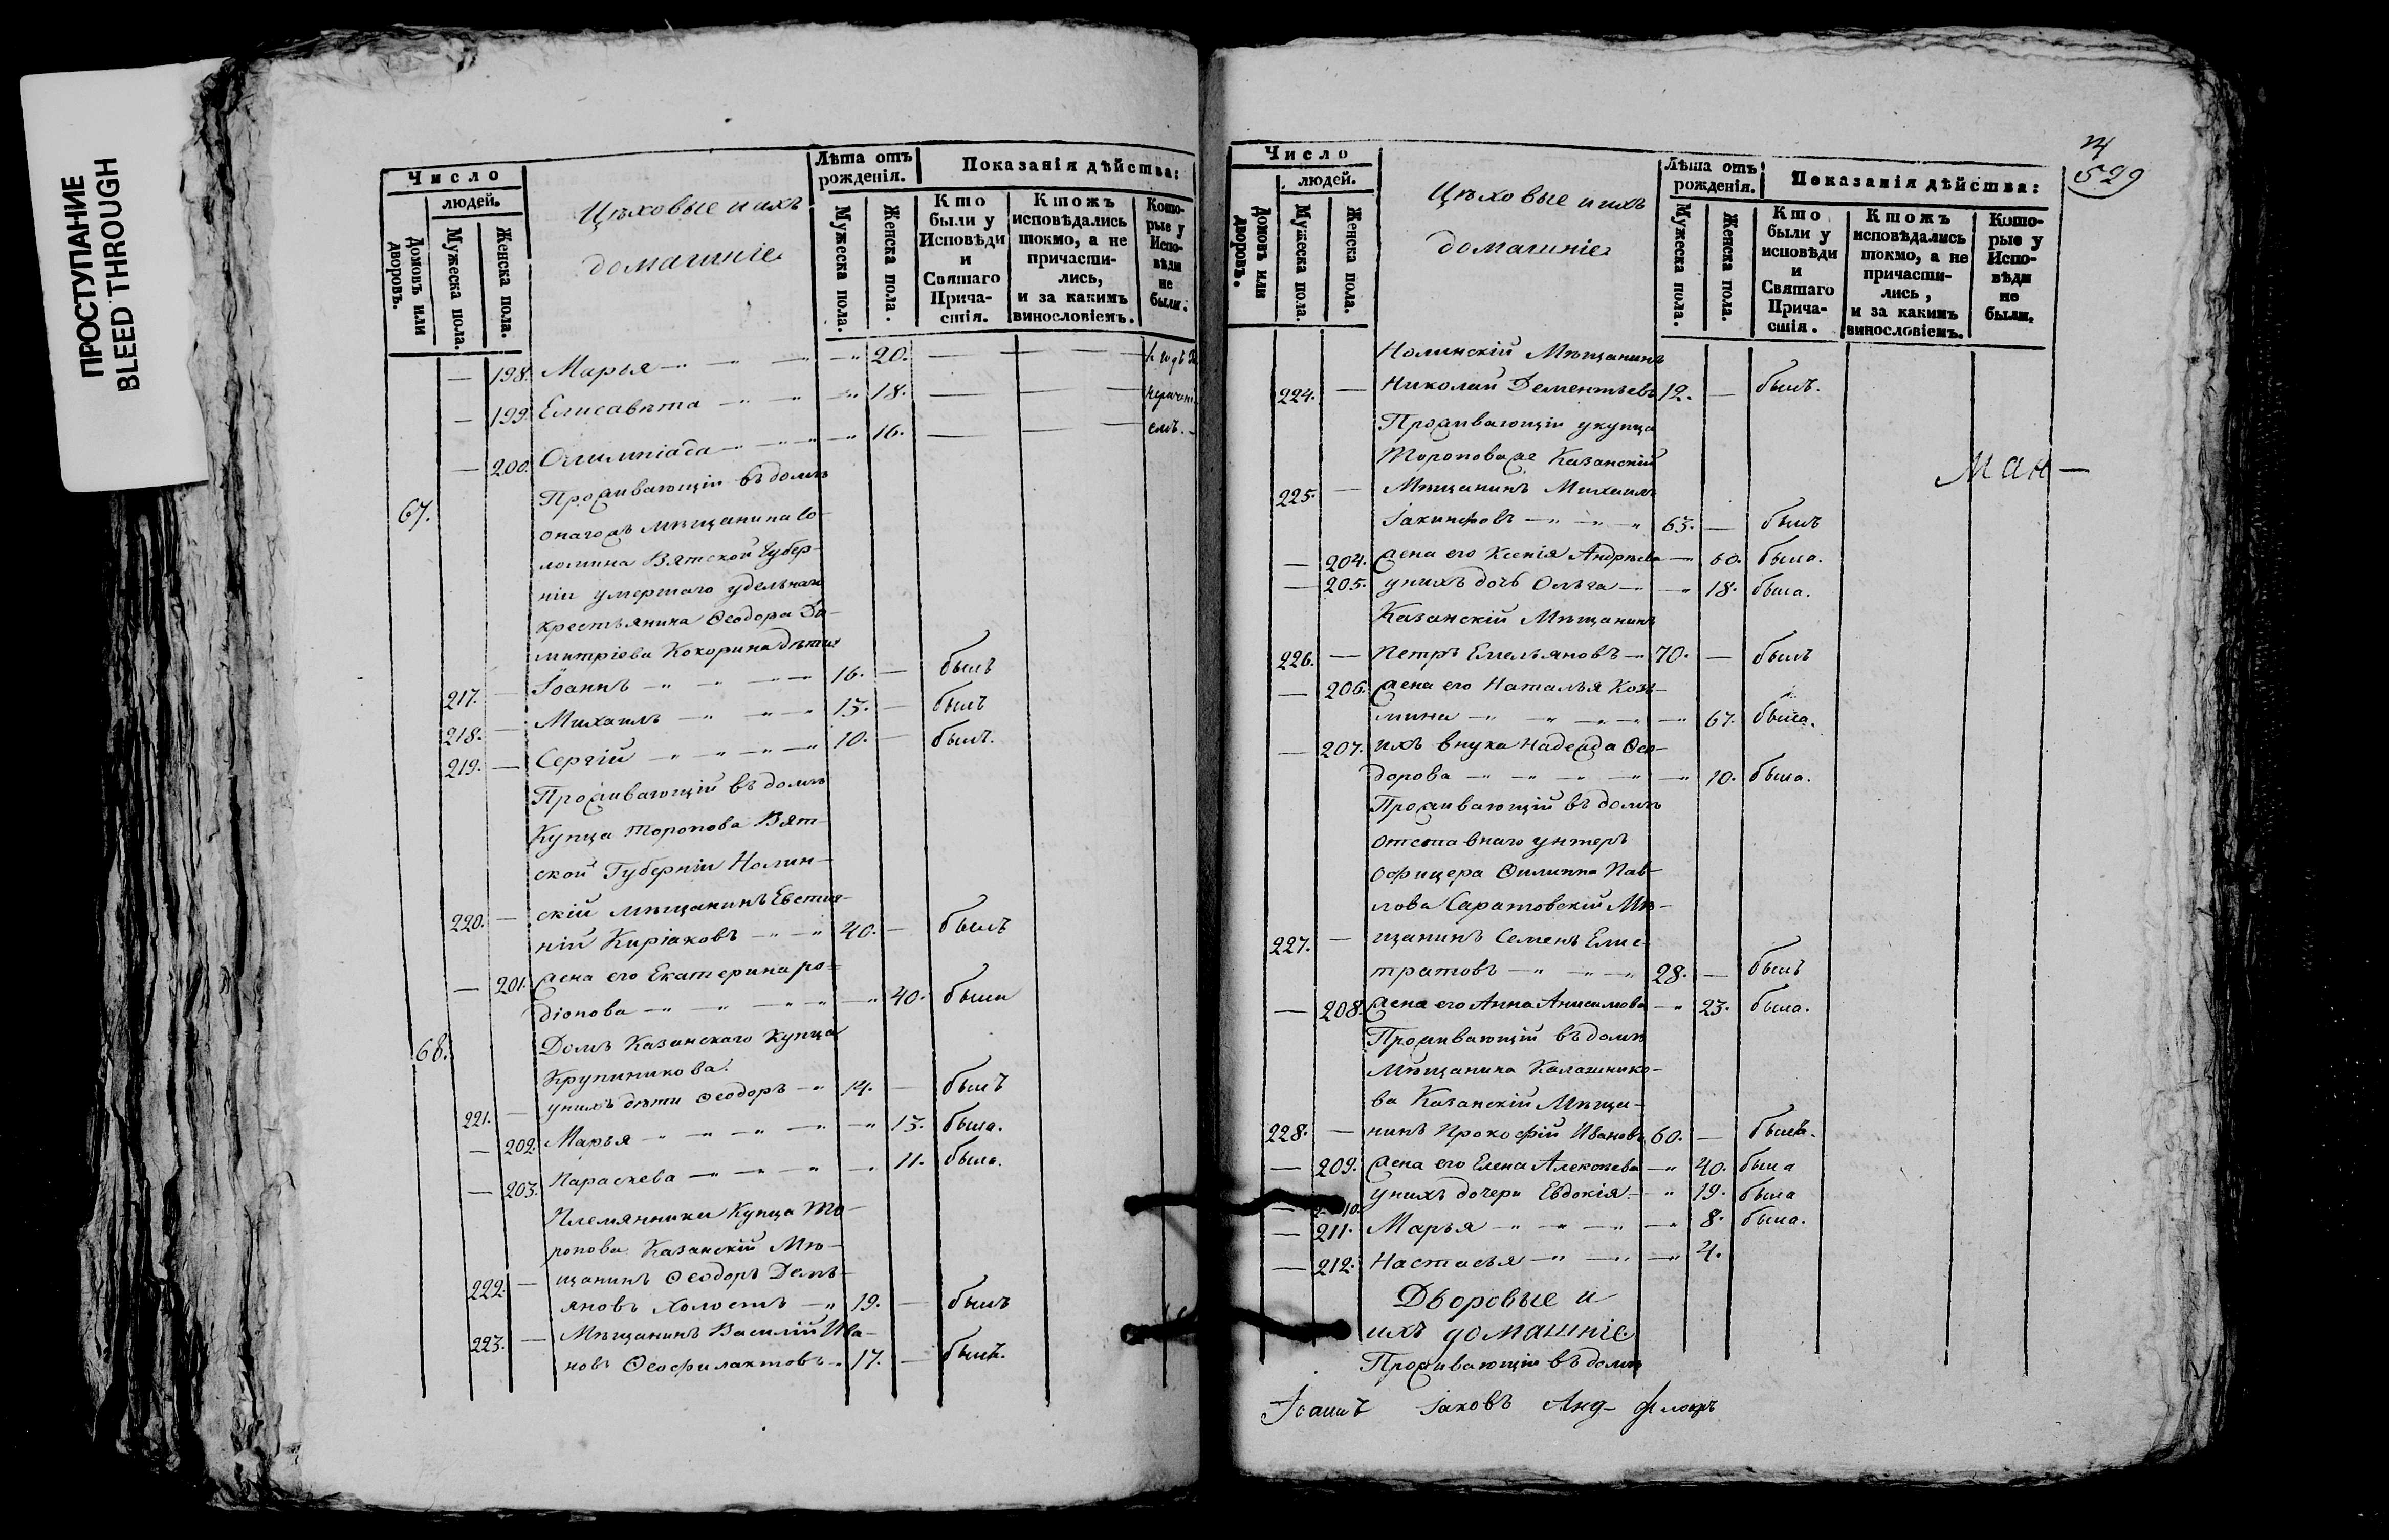 ПРОСТУПАНИЕ
BLEED THROUGH
Число
людей.
Домовъ или дворовъ.
Мужеска пола.
Женска пола.
Цѣховые и ихъ
домашніе
Лѣта отъ рожденія.
Мужеска пола.
Женска пола.
Показанія дѣйства:
Кто были у Исповѣди и Святаго Прича-стія.
Ктожъ исповѣдались токмо, а не причасти-лись, и за какимъ винословіемъ.
Кото-рые у Испо-вѣди не были.
— 198. Марья — 20. — —
— 199. Елисавѣта — 18. — —
— 200. Олимпіада — 16. — — емъ.
67. Проживающіи въ домѣ
онагожъ мѣщанина Со-
ломина Вятской Губер-
ніи умершаго удѣльнаго
крестьянина Ѳеодора Ди-
митріева Кокорина дѣти
217. — Іоаннъ — 16. — былъ
218. — Михаилъ — 15. — былъ
219. — Сергій — 10. — былъ.
Проживающій въ домѣ
Купца Торопова Вят-
ской Губерніи Нолин-
220. — скій мѣщанинъ Евстиг-
ній Киріаковъ — 40. — былъ
— 201. жена его Екатерина Ро-
діонова — 40. была
68. Домъ Казанскаго Купца
Крупиникова.
221. — унихъ дѣти Ѳеодоръ — 14. — былъ
— 202. Марья — 15. была.
— 203. Параскева — 11. была.
Племянники Купца То-
ропова Казанскій Мѣ-
222. — щанинъ Ѳеодоръ Демь-
яновъ Холостъ — 19. — былъ
223. — Мѣщанинъ Василій Ива-
новъ Ѳеофилактовъ — 17. — былъ.
529
Число
людей.
Домовъ или дворовъ.
Мужеска пола.
Женска пола.
Цѣховые и ихъ
домашніе
Лѣта отъ рожденія.
Мужеска пола.
Женска пола.
Показанія дѣйства:
Кто были у исповѣди и Святаго Прича-стія.
Ктожъ исповѣдались токмо, а не причасти-лись, и за какимъ винословіемъ.
Кото-рые у Испо-вѣди не были.
Нолинскій Мѣщанинъ
224. — Николай Дементьевъ 12. — былъ.
Проживающіи укупца
Тороповаже Казанскій
Ман —
225. — Мѣщанинъ Михаилъ
Іакинфовъ — 63. — былъ
— 204. жена его Ксенія Андрѣева — 60. была.
— 205. унихъ дочь Ольга — 18. была.
Казанскій Мѣщанинъ
226. — Петръ Емельяновъ — 70. — былъ
— 206. жена его Наталья Козь-
мина — 67. была.
— 207. ихъ внука Надежда Ѳео-
дорова — 10. была.
Проживающій въ домѣ
отставнаго унтеръ
офицера Филиппа Пав-
лова Саратовскій Мѣ-
227. — щанинъ Семенъ Елис-
тратовъ — 28. — былъ
— 208. жена его Анна Анисимова — 23. была.
Проживающій въ домѣ
Мѣщанина Калашнико-
ва Казанскій Мѣща-
228. — нинъ Прокофій Ивановъ 60. — былъ.
— 209. жена его Елена Алексѣева — 40. была
— 210. унихъ дочери Евдокія — 19. была
— 211. Марья — 8. была.
— 212. Настасья — 4.
Дворовые и
ихъ домашніе
Проживающіи въ домѣ
Іоаннъ Іаковъ Анд-